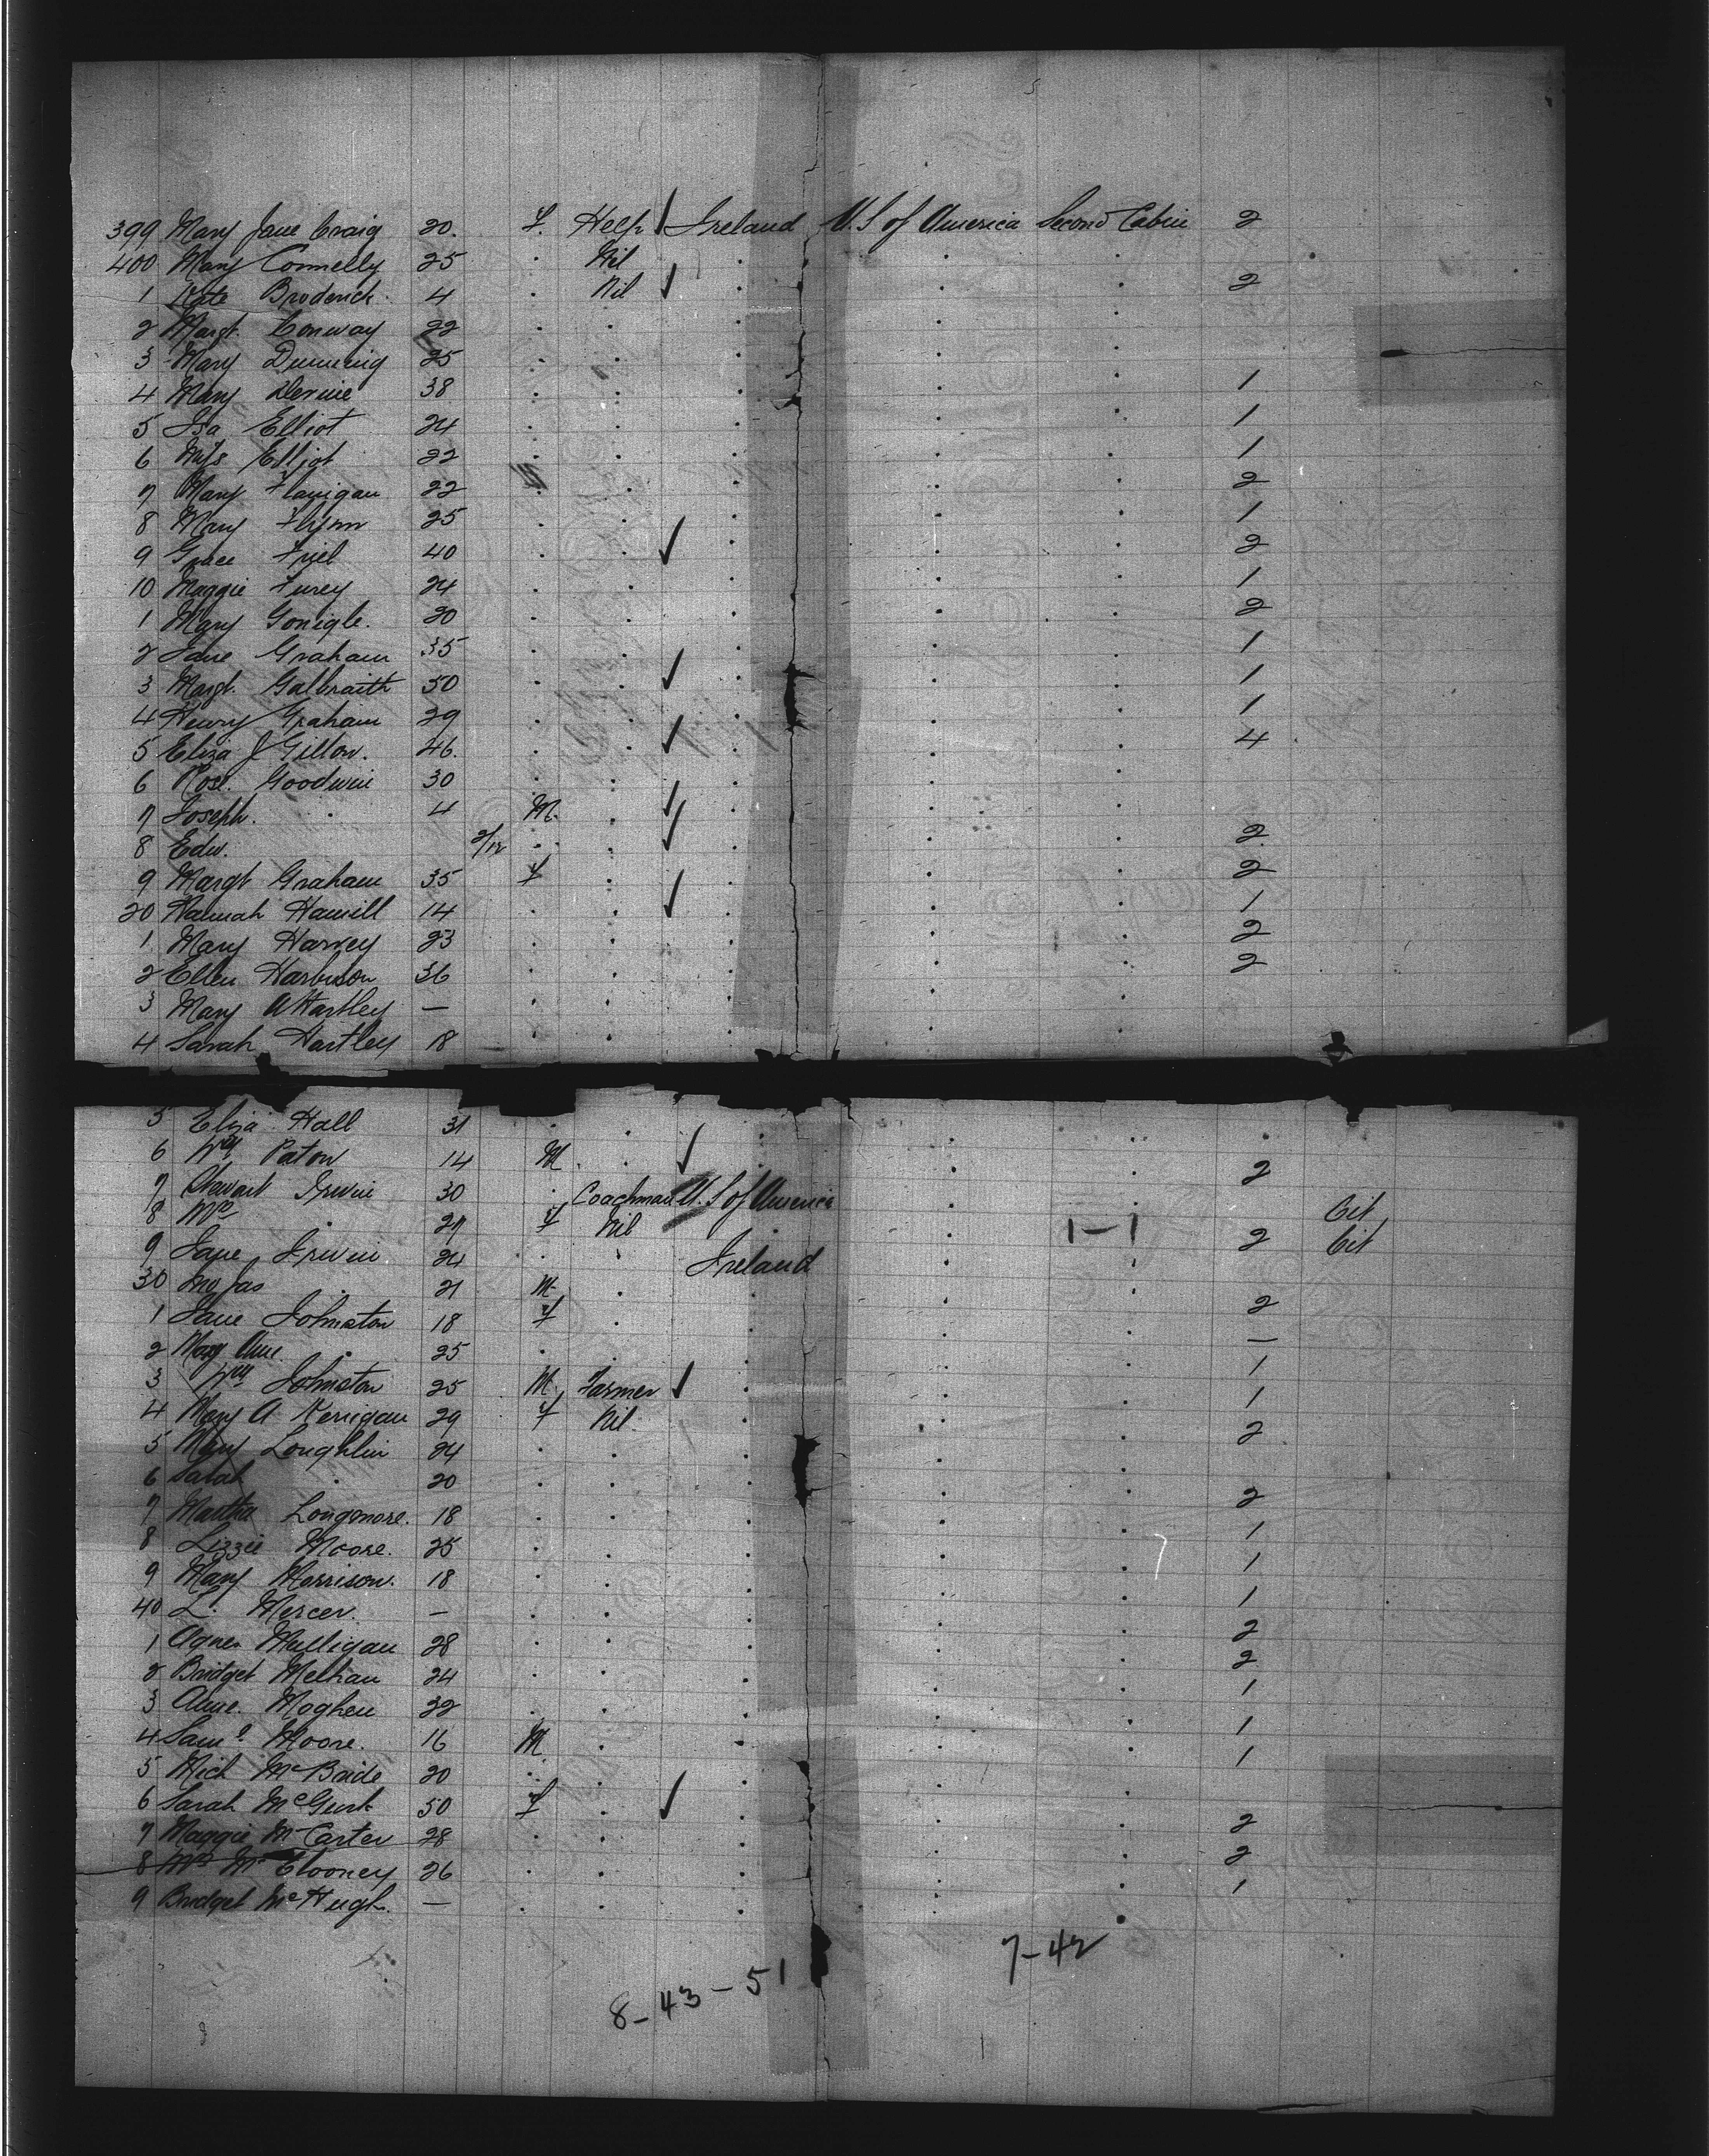 399 Mary Jane Craig 20. f. Help Ireland U.S of America Second Cabin 2
400 Mary Connelly 25 . Nil . . .
1 Kate Broderick 4 . Nil . . . 2
2 Margt. Conway 22 . . . . .
3 Mary Dunning 25 . . . . .
4 Mary Devine 38 . . . . . 1
5 Isa Elliot 24 . . . . . 1
6 Elliot 22 . . . . . 1
7 Mary Flanigan 22 . . . . . 2
8 Mary Flynn 25 . . . . . 1
9 Grace Friel 40 . . . . . 2
10 Maggie Furey 24 . . . . . 1
1 Mary Gonigle. 20 . . . . . 2
2 Jane Graham 35 . . . . . 1
3 Margt. Galbraith 50 . . . . . 1
4 Henry Graham 29 . . . . . 1
5 Eliza J Gillon. 46. . . . . . 4
6 Rose. Goodwin 30 . . . . .
7 Joseph. . 4 M. . . . .
8 Edw. 2/12 . . . . . 2
9 Margt Graham 35 f . . . . 2
20 Hannah Hamill 14 . . . . . 1
1 Mary Harvey 23 . . . . . 2
2 Ellen Harbison 36 . . . . . 2
3 Mary A Hartley — . . . . .
4 Sarah Hartley 18 . . . . .
5 Eliza Hall 31 . . . . . .
6 Wm Paton 14 M . . . . 2
7 Stewart Irwin 30 . Coachman U.S of America . . Cit
8 Mrs . 27 f Nil . 1-1 2 Cit
9 Jane Irwin 24 . . Ireland . .
30 Jno Jas . 21 M . . . . 2
1 Jane Johnston 18 f . . . . —
2 Mary Anne . 25 . . . . . 1
3 Wm Johnston 25 M. Farmer . . . 1
4 Mary A Kerrigan 29 f Nil. . . . 2
5 Mary Loughlin 24 . . . . .
6 Sarah . 20 . . . . . 2
7 Martha Longmore. 18 . . . . . 1
8 Lizzie Moore. 25 . . . . . 1
9 Mary Morrison. 18 . . . . . 1
40 L. Mercer. — . . . . . 2
1 Agnes Mulligan 28 . . . . . 2
2 Bridget 24 . . . . . 1
3 Anne. 32 . . . . . 1
4 Saml Moore. 16 M . . . . 1
5 Mich McBride 20 . . . . .
6 Sarah McGurk 50 f . . . . 2
7 Maggie McCarter 28 . . . . . 2
8 Mrs Mc Clooney 26 . . . . . 1
9 Bridget McHugh. — . . . . .
7-42
8-43-51